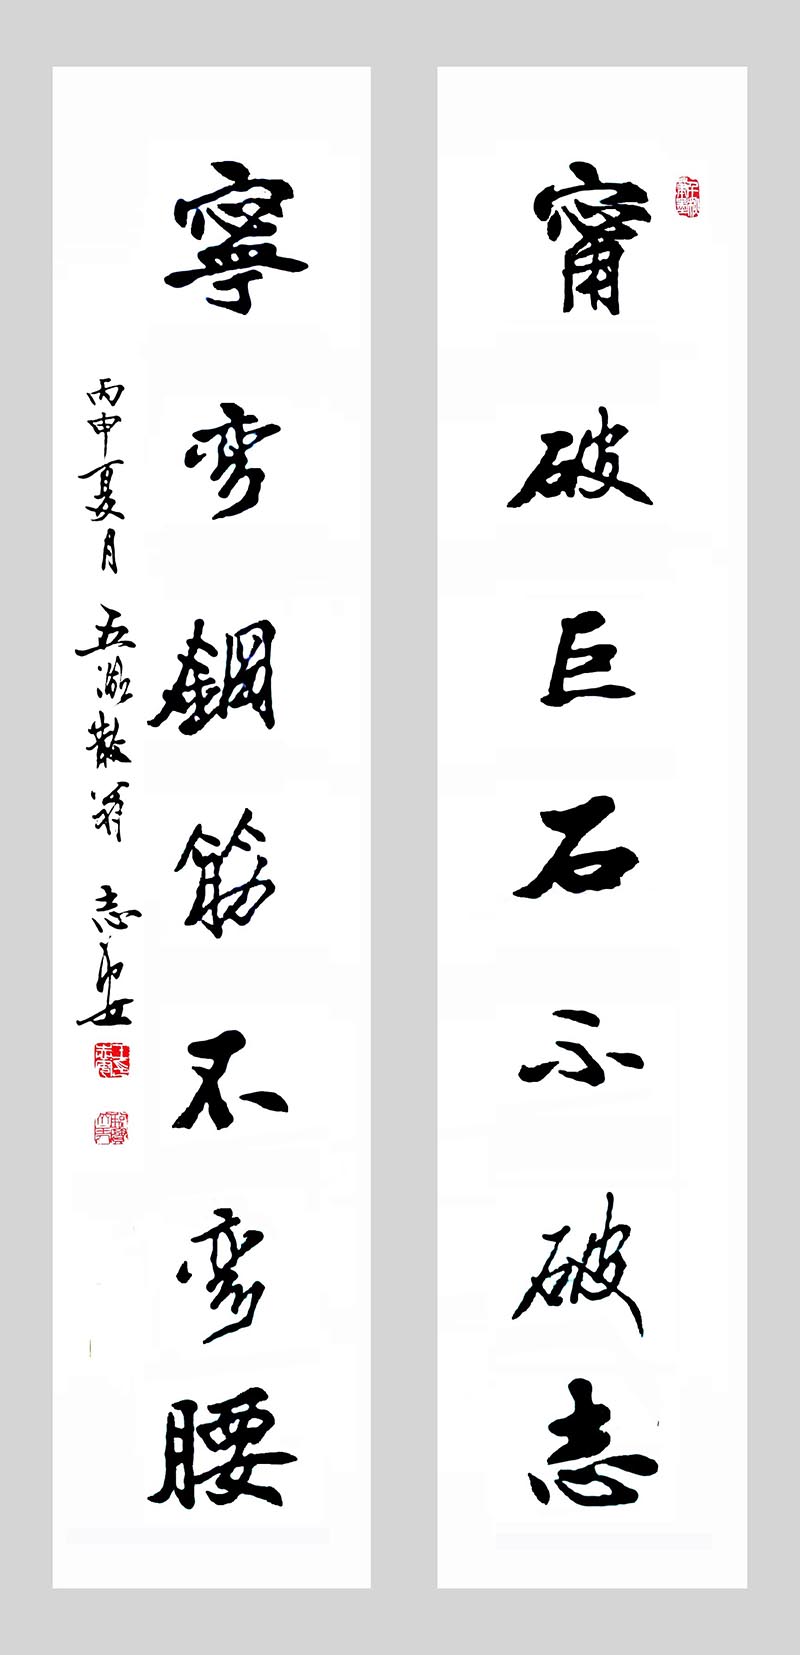 甯破巨石不破志
寧弯鋼筋不弯腰
丙申夏月 五湖散翁 志安